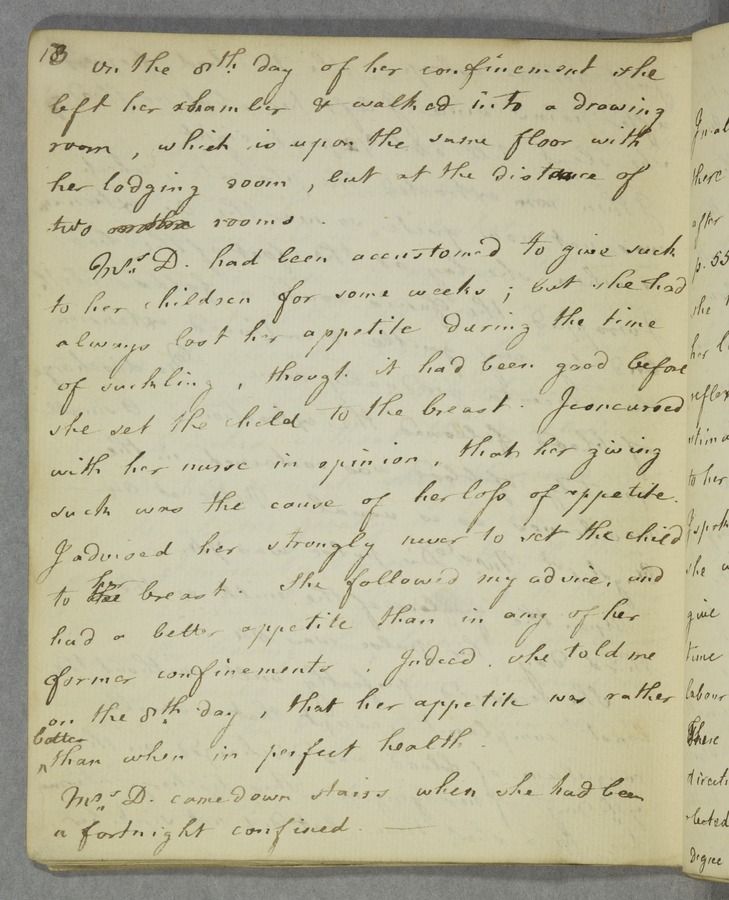 18
On the 8th day of her confinement she
left her chamber & walked into a drawing
room, which is upon the same floor with
her lodging room, but at the distance of
two rooms.
Mrs D. had been accustomed to give suck
to her children for some weeks; but she had
always lost her appetite during the time
of suckling, though it had been good before
she set the child to the breast. I concurred
with her nurse in opinion, that her giving
suck was the cause of her loss of appetite.
I advised her strongly never to set the child
to her breast. She followed my advice, and
had a better appetite than in any of her
former confinements. Indeed, she told me
on the 8th day, that her appetite was rather
better
than when in perfect health.
Mrs D. came down stairs when she had been
a fortnight confined. —
there
after
p. 55
she
her
to her
she
give
time
labour
These
Degree